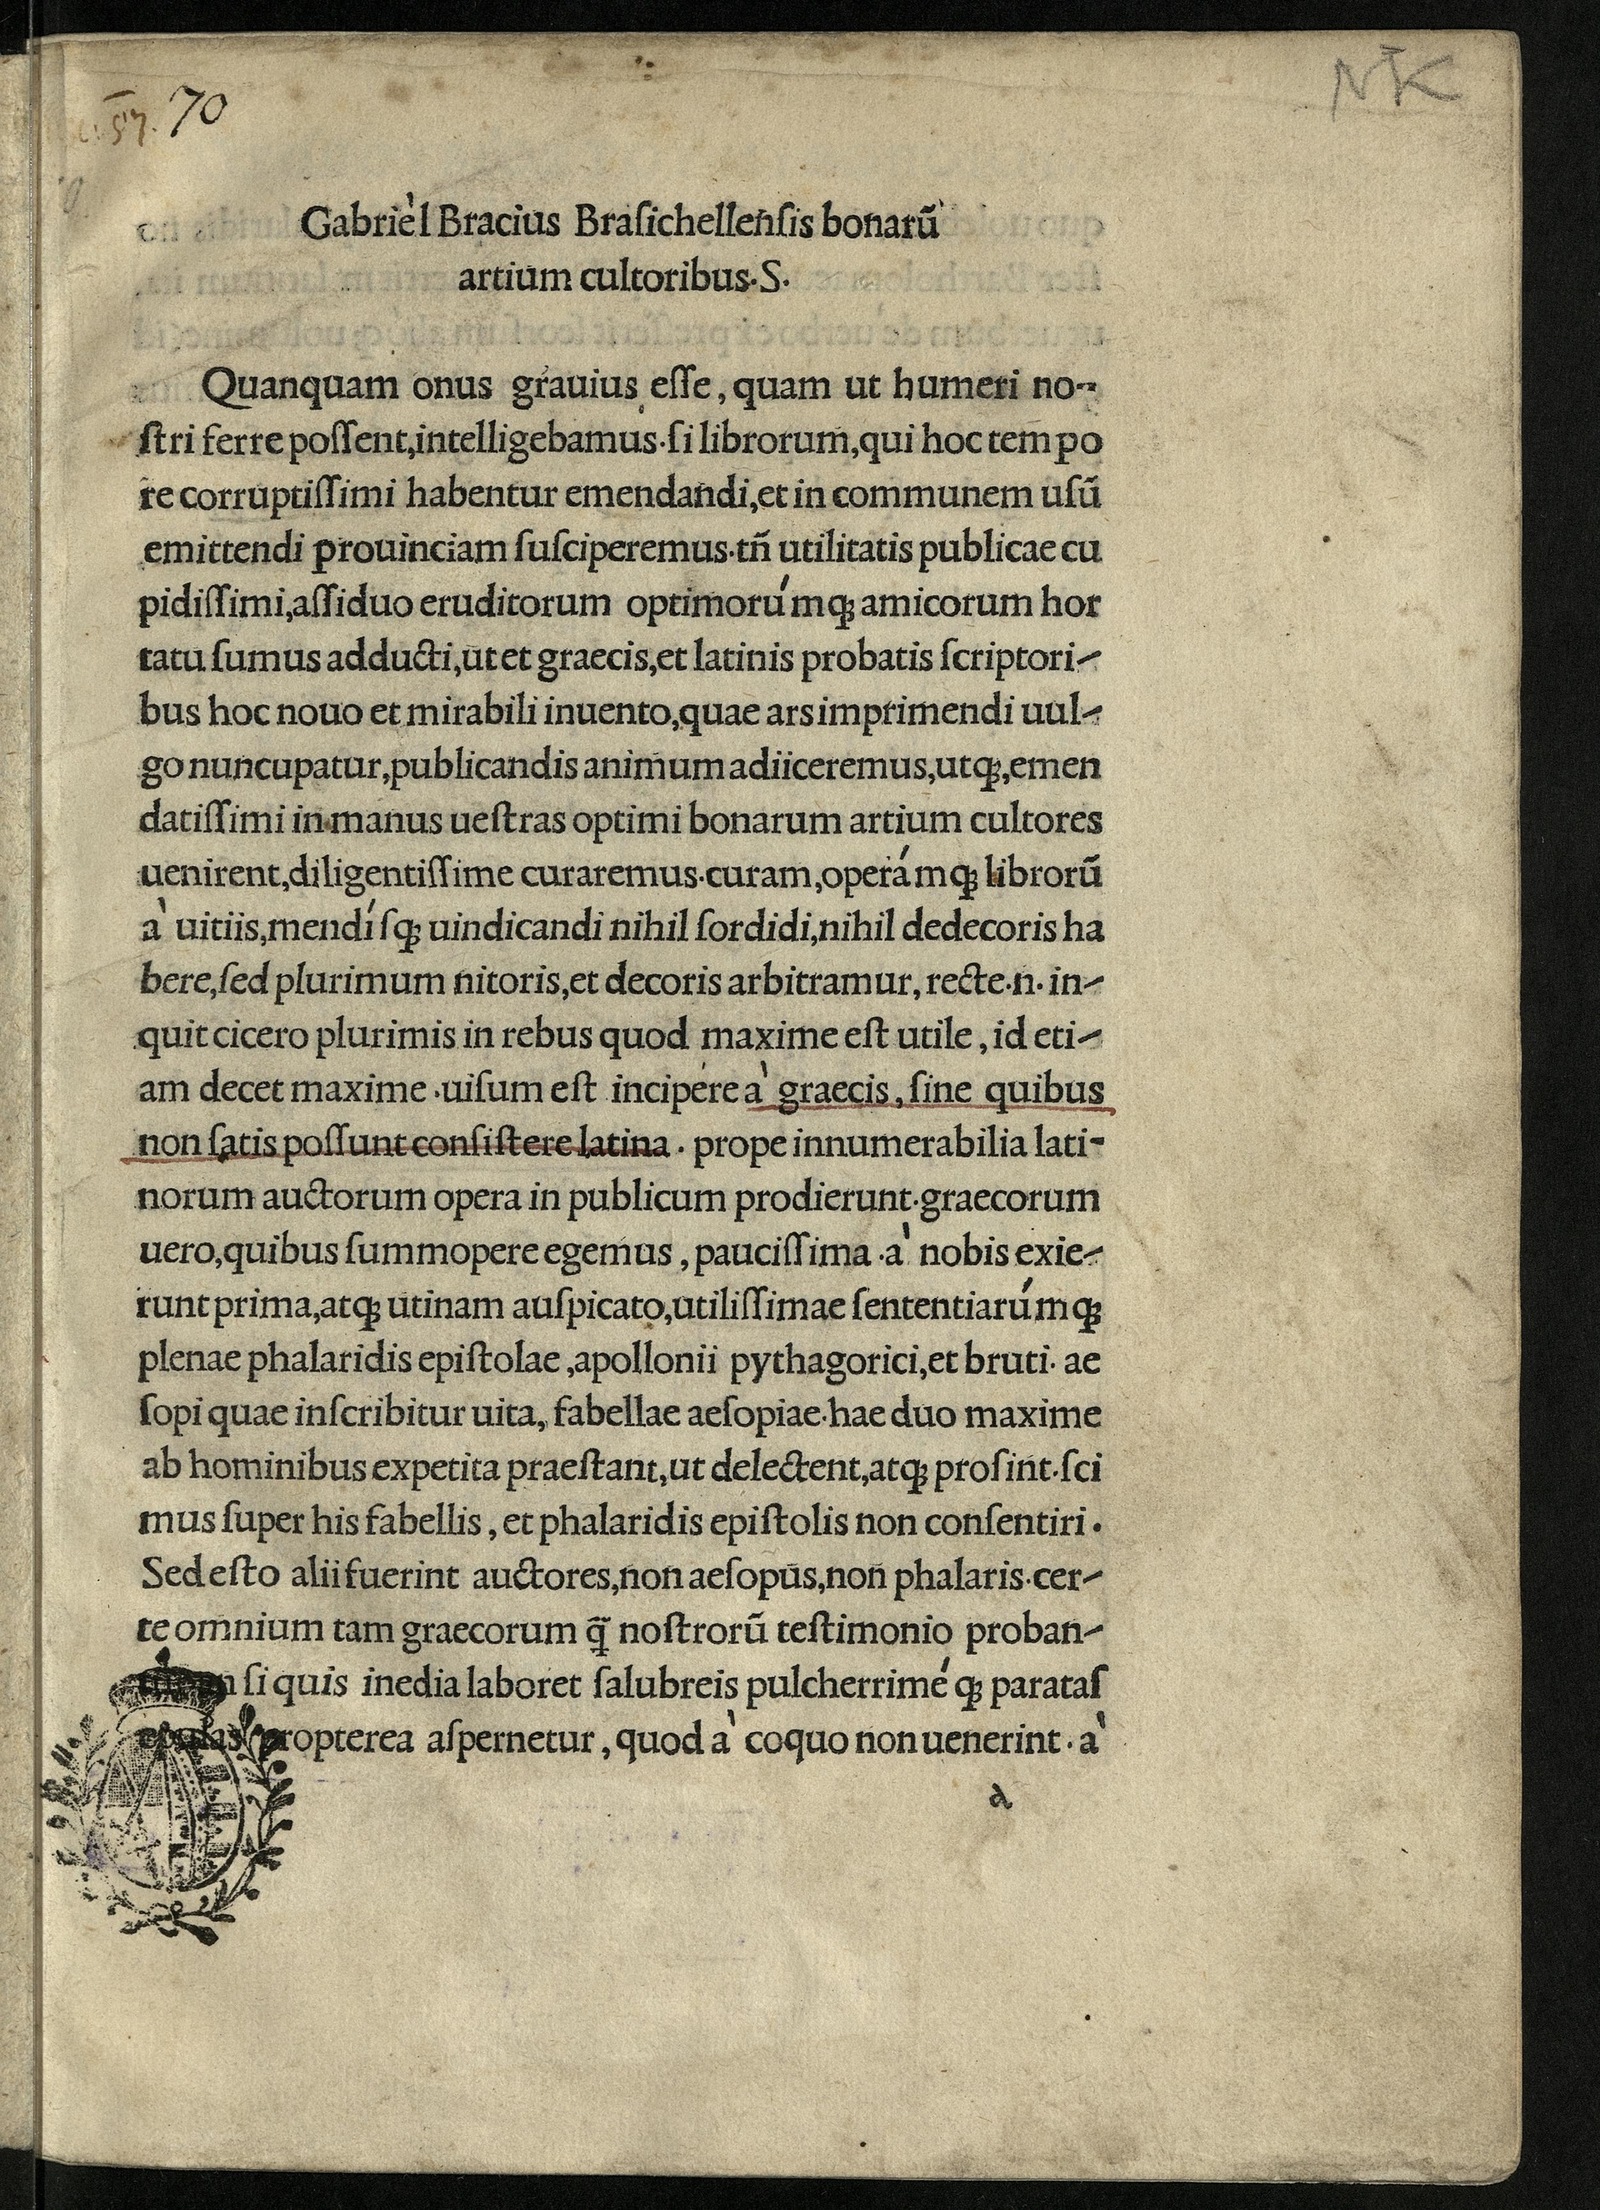 57. 70
NK
Gabrie`l Bracius Braſichellenſis bonarũ
artium cultoribus·S·
Quanquam onus grauius eſſe, quam ut humeri no-
ſtri ferre poſſent,intelligebamus·ſi librorum,qui hoc tempo
re corruptiſſimi habentur emendandi,et in communem uſũ
emittendi prouinciam ſuſciperemus·tñ utilitatis publicae cu
pidiſſimi,aſſiduo eruditorum optimorúmq; amicorum hor
tatu ſumus adducti,ut et graecis,et latinis probatis ſcriptori-
bus hoc nouo et mirabili inuento,quae ars imprimendi uul-
go nuncupatur,publicandis animum adiiceremus,utq;,emen
datiſſimi in manus ueſtras optimi bonarum artium cultores
uenirent,diligentiſſime curaremus·curam,operámq; librorũ
à uitiis,mendíſq; uindicandi nihil ſordidi,nihil dedecoris ha
bere,ſed plurimum nitoris,et decoris arbitramur, recte·n· in-
quit cicero plurimis in rebus quod maxime eſt utile, id eti-
am decet maxime ·uiſum eſt incipere à graecis, ſine quibus
non ſatis poſſunt conſiſtere latina · prope innumerabilia lati-
norum auctorum opera in publicum prodierunt·graecorum
uero,quibus ſummopere egemus, pauciſſima ·à nobis exie-
runt prima,atq; utinam auſpicato,utiliſſimae ſententiarúmq;
plenae phalaridis epiſtolae,apollonii pythagorici,et bruti· ae
ſopi quae inſcribitur uita, fabellae aeſopiae·hae duo maxime
ab hominibus expetita praeſtant,ut delectent,atq; proſint·ſci
mus ſuper his fabellis, et phalaridis epiſtolis non conſentiri·
Sed eſto alii fuerint auctores,non aeſopus,non phalaris·cer-
te omnium tam graecorum q̃ noſtrorũ teſtimonio proban-
ſi quis inedia laboret ſalubreis pulcherriméq; parataſ
epulas propterea aſpernetur, quod à coquo non uenerint· à
a